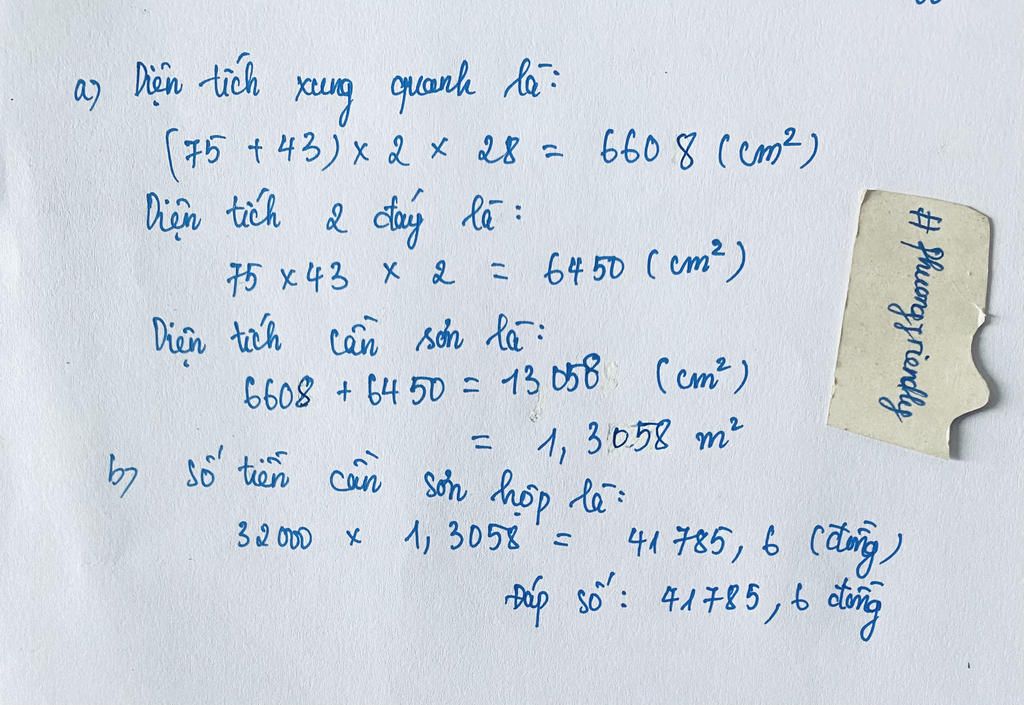 a) Diện tích xung quanh là:
(75 + 43) x 2 x 28 = 6608 (cm²)
Diện tích 2 đáy là:
75 x 43 x 2 = 6450 (cm²)
Diện tích cần sơn là:
6608 + 6450 = 13058 (cm²)
= 1,3058 m²
b) Số tiền cần sơn hộp là:
32000 x 1,3058 = 41785,6 (đồng)
Đáp số: 41785,6 đồng
# phuongfriendly